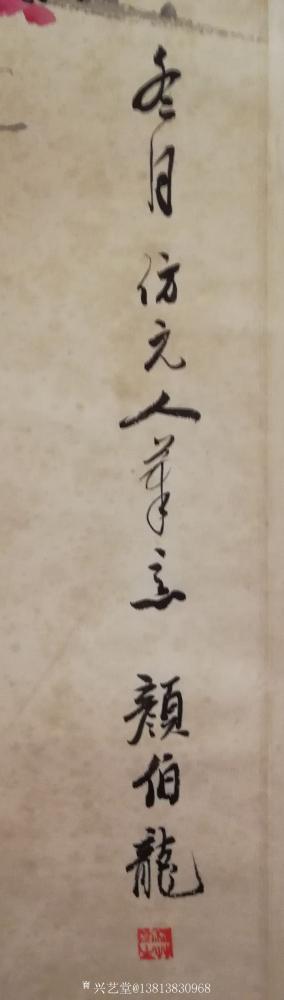 冬月仿元人笔意 顔伯龍
兴艺堂@13813830968